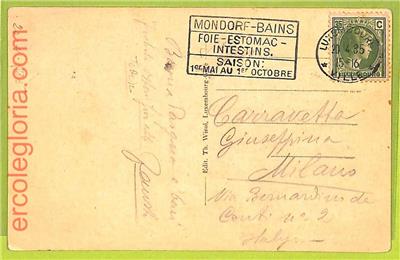 MONDORF-BAINS
FOIE-ESTOMAC-
INTESTINS.
SAISON:
1er MAI AU 1er OCTOBRE
LUXEMBOURG
20.4.35
15-16
VILLE
C
Buona Pasqua e baci
Edit. Th. Wirol, Luxembourg
Carravetta
Giuseppina
Milano
Via Bernardino de
Conti n° 2
Italy
ercolegloria.com